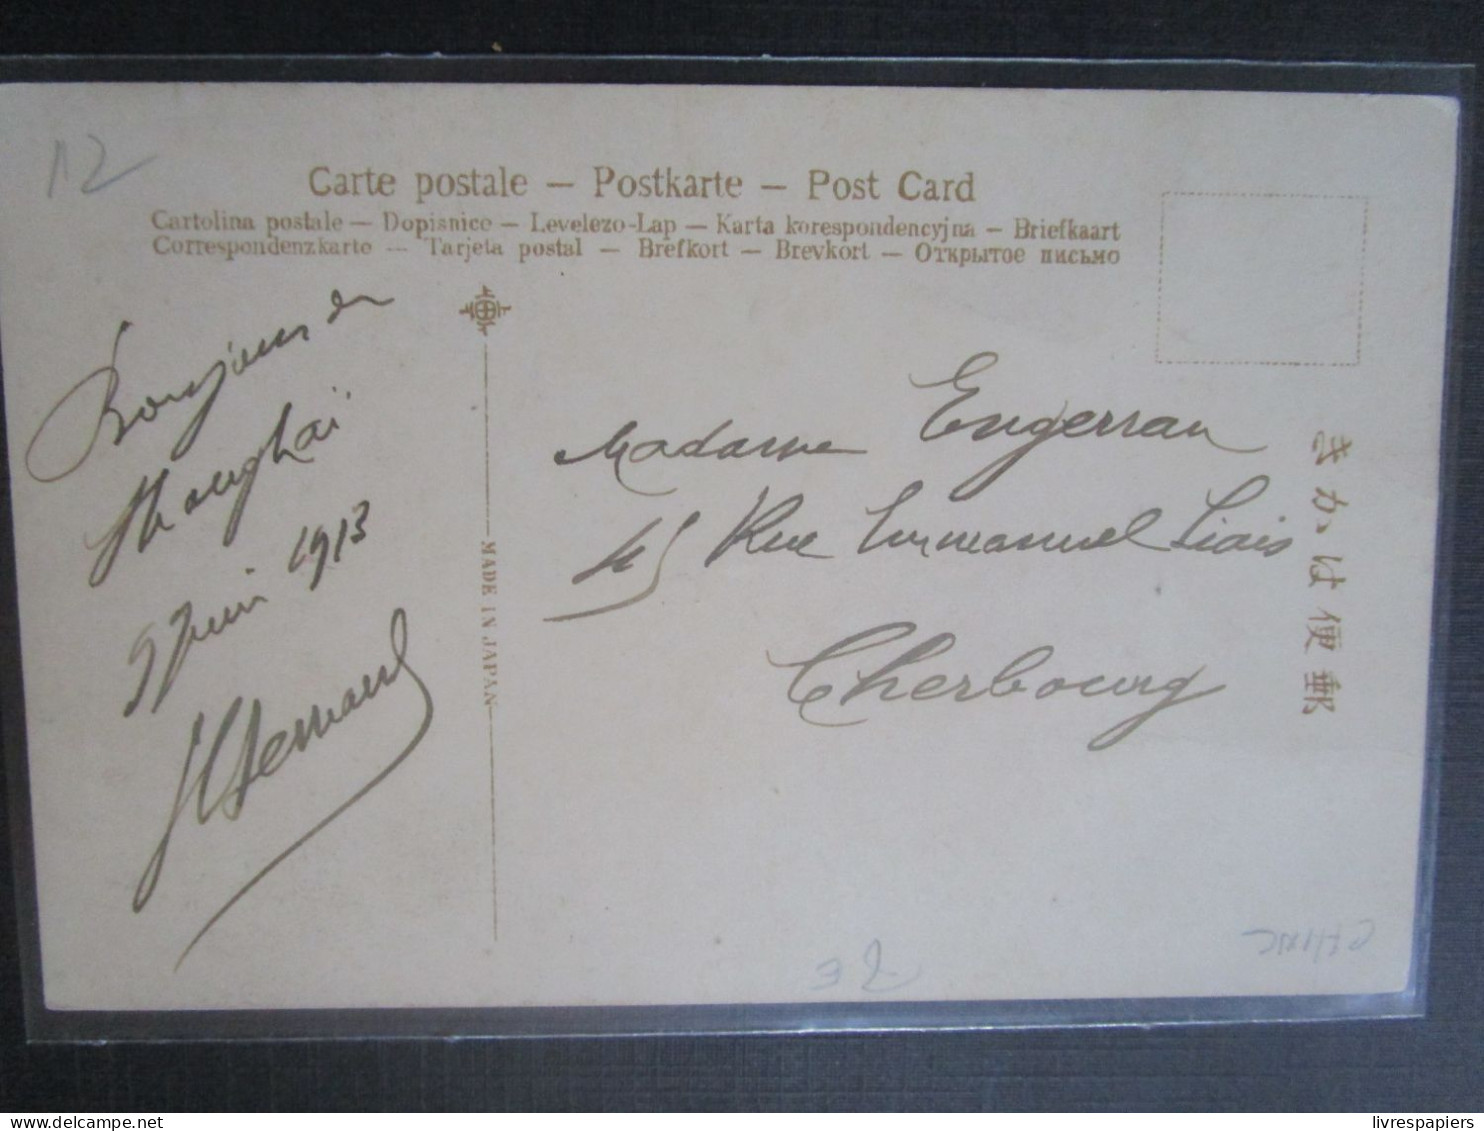 12
Carte postale — Postkarte — Post Card
Cartolina postale — Dopisnice — Levelezo-Lap — Karta korespondencyjna — Briefkaart
Correspondenzkarte — Tarjeta postal — Brefkort — Brevkort — Открытое письмо
Bonjour de
Shanghaï
9 Juin 1913
MADE IN JAPAN
Madame Engerran
45 Rue Emmanuel Liais
Cherbourg
きかは便郵
32
CHINE
livrespapiers